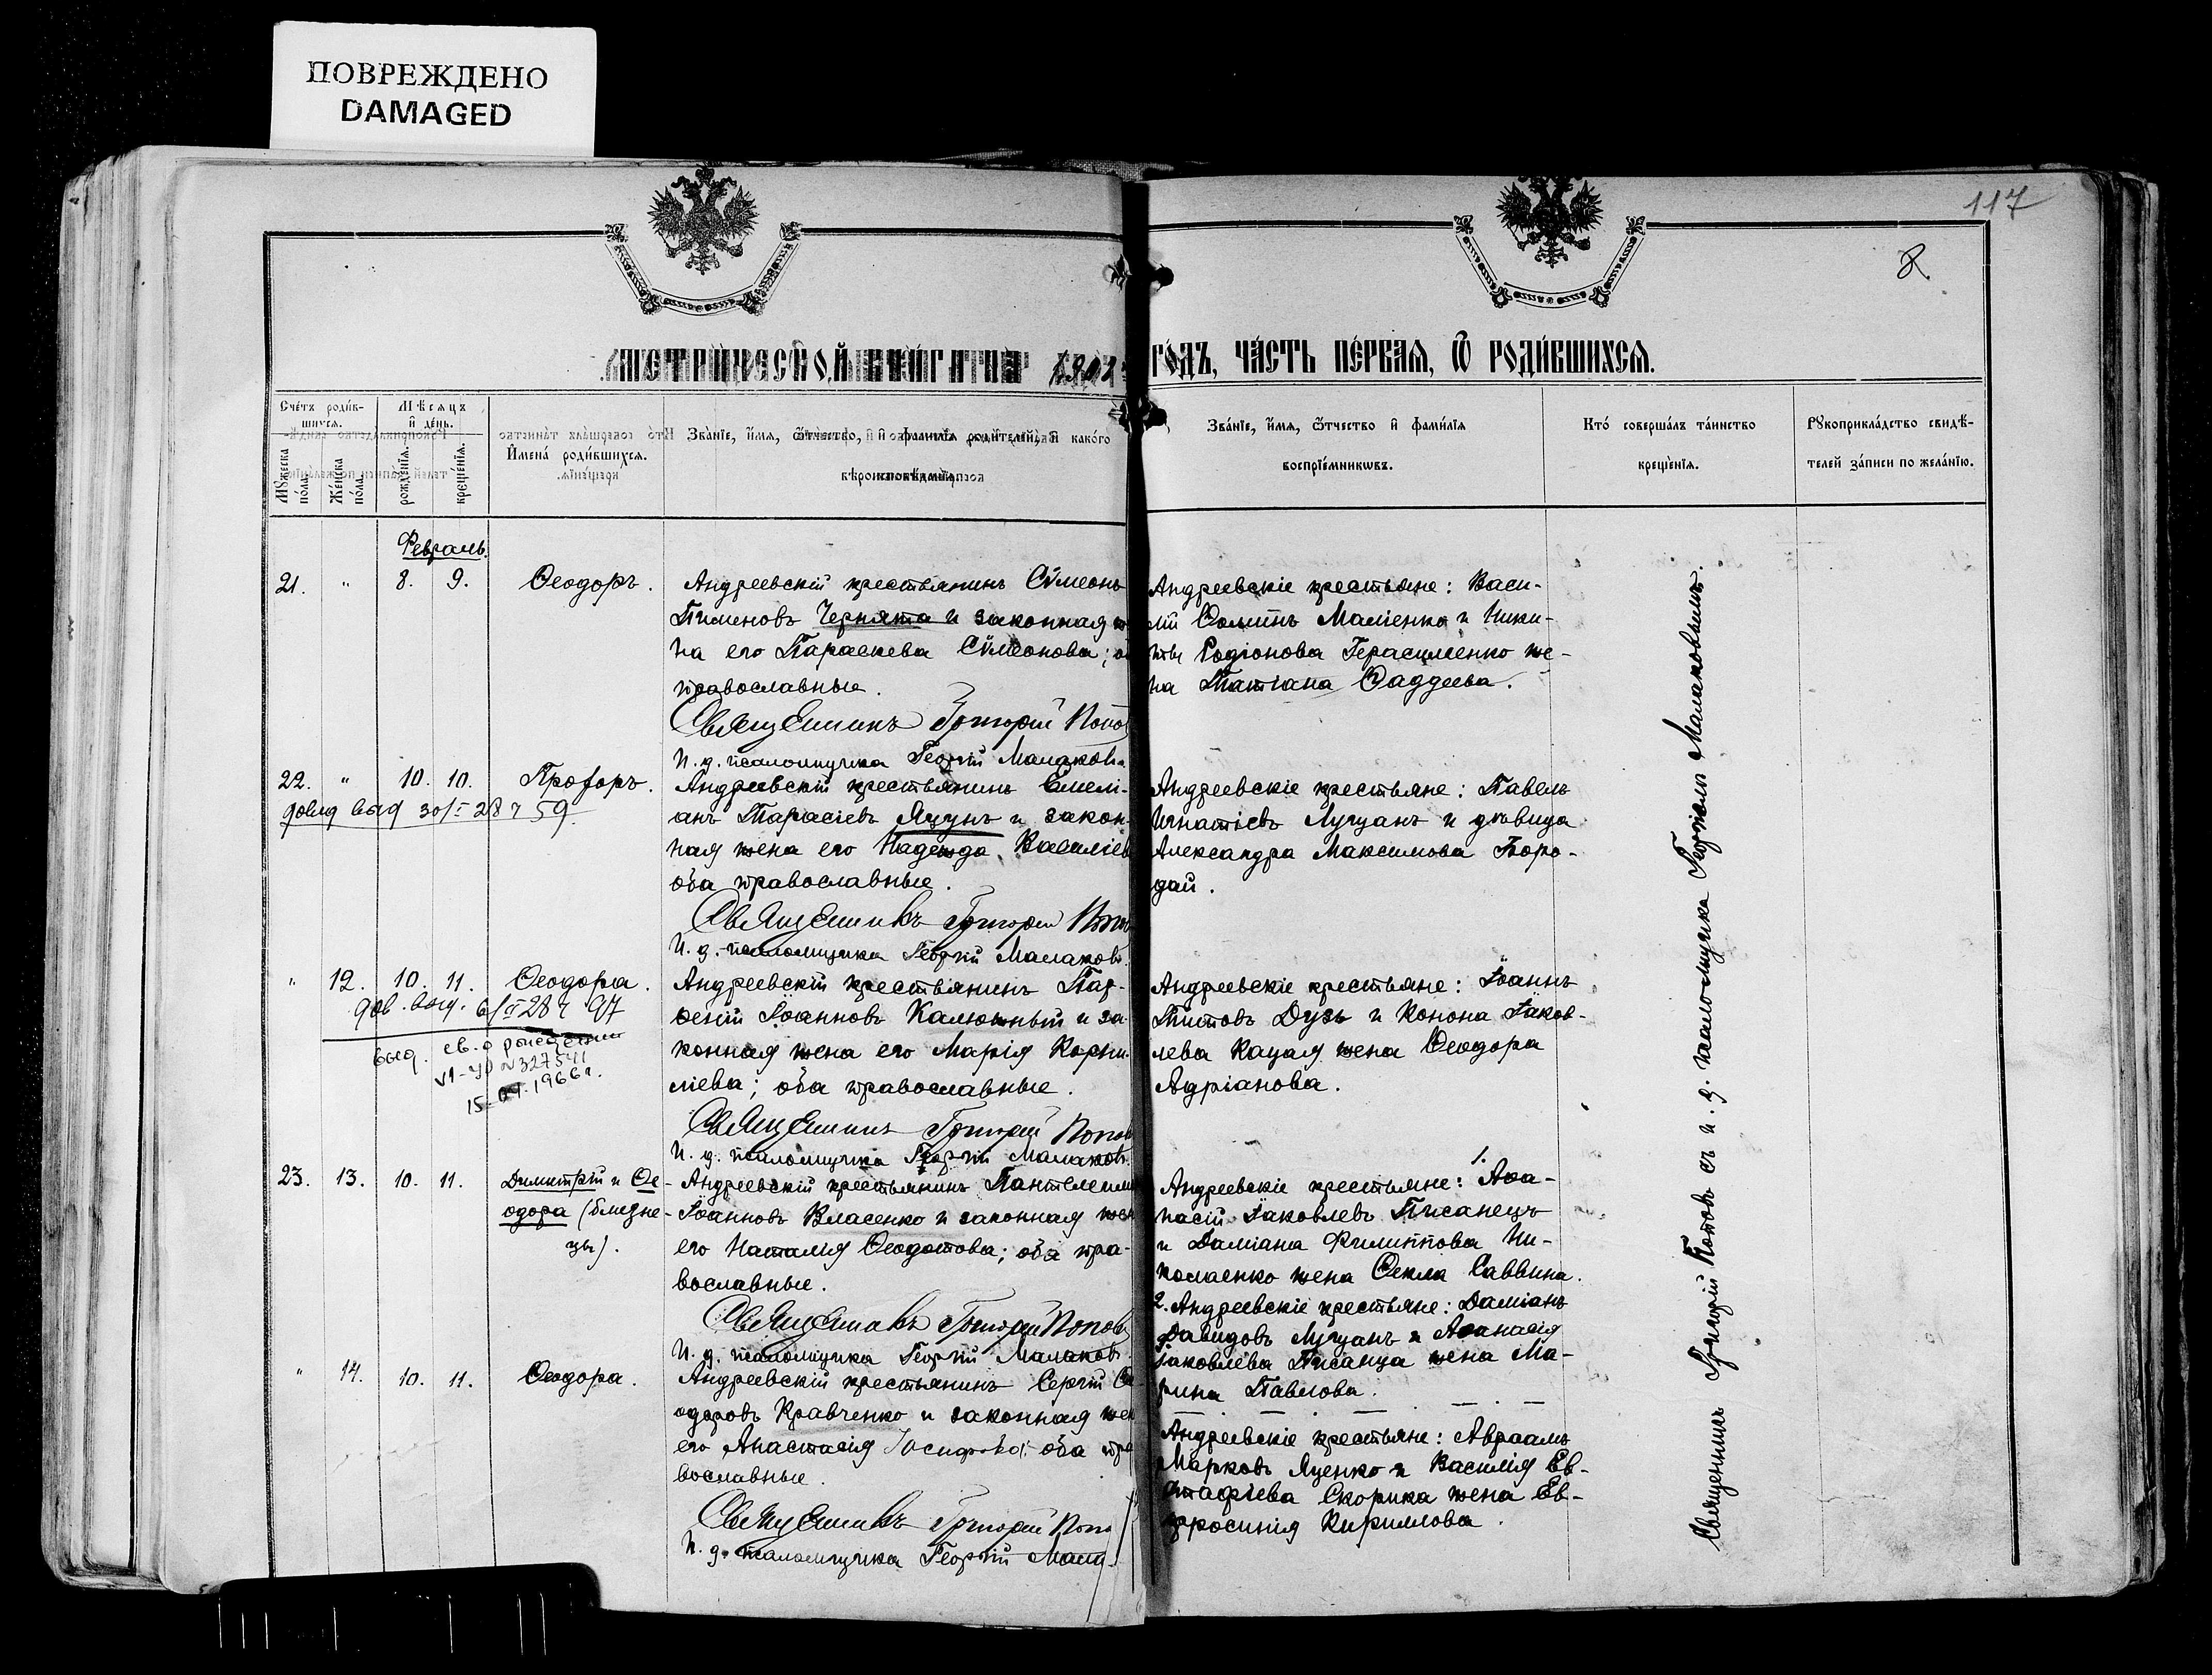 ПОВРЕЖДЕНО
DAMAGED
117
8
МЕТРИЧЕСКОЙ КНИГИ НА 1902
ГОДЪ, ЧАСТЬ ПЕРВАЯ, Ѿ РОДИВШИХСЯ.
Счетъ родив-
шихся.
Мужеска пола.
Женска пола.
Мѣсяцъ
и день.
рожденія.
крещенія.
Имена родившихся.
Званіе, имя, отчество, и фамилія родителей, и какого
вѣроисповѣданія.
Званіе, имя, отчество и фамилія
воспріемниковъ.
Кто совершалъ таинство
крещенія.
Рукоприкладство свидѣ-
телей записи по желанію.
Февраль.
21. " 8. 9. Ѳеодоръ.
Андреевскій крестьянинъ Сѵмеонъ
Пименовъ Чернята и законная
на его Параскева Сѵмеонова;
православные.
Священникъ Григорій Попов
И. д. псаломщика Георгій Малаковъ
Андреевскіе крестьяне: Васи-
лій Ѳоминъ Маліенко и Ники-
ты Родіонова Герасименко же-
на Татіана Ѳаддеева.
22. " 10. 10. Прохоръ.
довид выд 30/I 28 г 59
Андреевскій крестьянинъ Емелі-
анъ Тарасіевъ Яцунъ и закон-
ная жена его Надежда Васильев
оба православные.
Священникъ Григорій Попов
И. д. псаломщика Георгій Малаковъ.
Андреевскіе крестьяне: Павелъ
Игнатіевъ Лугцанъ и дѣвица
Александра Максимова Боро-
дай.
" 12. 10. 11. Ѳеодора.
дов. выд. 6/II 28 г 97
выд. св. о рождении
VI-УР №327541
15.04.1966г.
Андреевскій крестьянинъ Пар-
ѳеній Іоанновъ Калюжный и за-
конная жена его Марія Корни-
ліева; оба православные.
Священникъ Григорій Попов
И. д. псаломщика Георгій Малаковъ.
Андреевскіе крестьяне: Іоаннъ
Титовъ Дузь и Конона Іаков-
лева Кацая жена Ѳеодора
Адріанова.
23. 13. 10. 11. Димитрій и Ѳе-
одора (близне-
цы).
Андреевскій крестьянинъ Пантелеим
Іоанновъ Власенко и законная жен
его Наталія Ѳеодотова; оба пра-
вославные.
Священникъ Григорій Попов
И. д. псаломщика Георгій Малаковъ.
1.
Андреевскіе крестьяне: Аѳа-
насій Іаковлевъ Писанецъ
и Даміана Филиппова Ни-
колаенко жена Ѳекла Саввина.
2. Андреевскіе крестьяне: Даміанъ
Давидовъ Лугцанъ и Аѳанасія
Іаковлева Писанца жена Ма-
рина Павлова.
" 14. 10. 11. Ѳеодора.
Андреевскій крестьянинъ Сергій Ѳе
одоровъ Кравченко и законная жен
его Анастасія Іосифова; оба пра
вославные.
Священникъ Григорій Попо
И. д. псаломщика Георгій Мала
Андреевскіе крестьяне: Авраамъ
Марковъ Яценко и Василія Ев-
стафіева Скорика жена Ев-
фросинія Кириллова.
Священникъ Григорій Поповъ съ и. д. псаломщика Георгіемъ Малаковымъ.